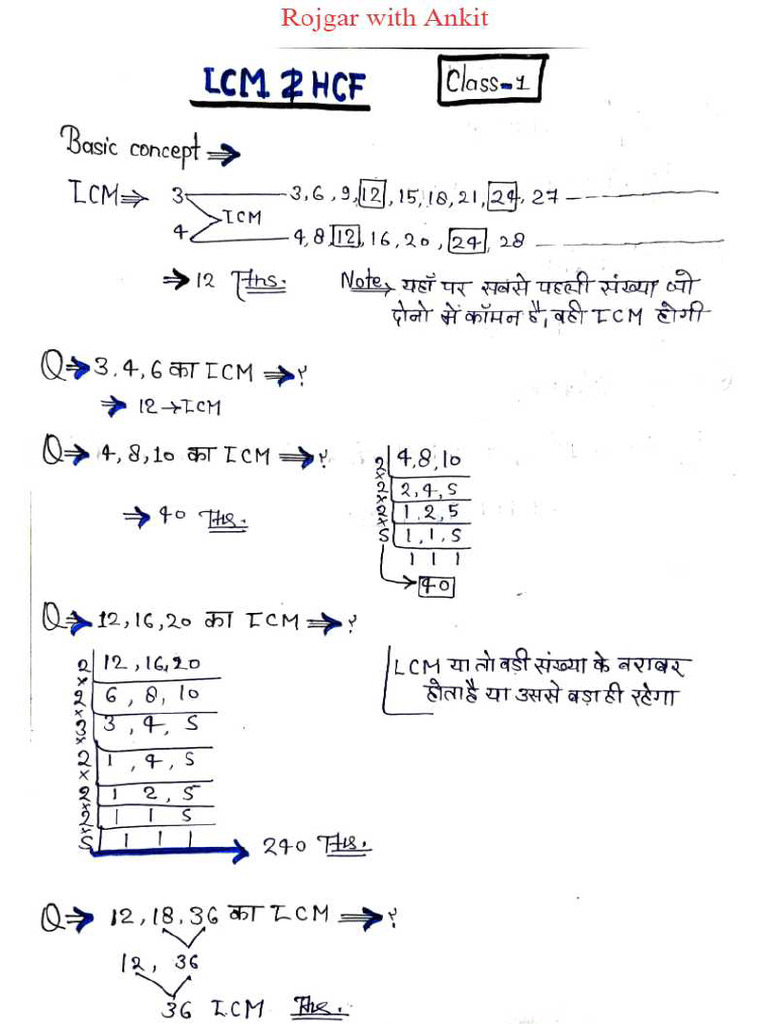 Rojgar with Ankit
LCM & HCF
Class-1
Basic concept ⇒
LCM ⇒ 3 3, 6, 9, 12, 15, 18, 21, 24, 27
LCM
4 4, 8, 12, 16, 20, 24, 28
⇒ 12 Ans.
Note → यहाँ पर सबसे पहली संख्या जो
दोनो में कॉमन है, वही LCM होगी
Q ⇒ 3, 4, 6 का LCM ⇒ ?
⇒ 12 → LCM
Q ⇒ 4, 8, 10 का LCM ⇒ ?
2 | 4, 8, 10
×
2 | 2, 4, 5
×
2 | 1, 2, 5
×
5 | 1, 1, 5
1 1 1
→ 40
⇒ 40 Ans.
Q ⇒ 12, 16, 20 का LCM ⇒ ?
2 | 12, 16, 20
×
2 | 6, 8, 10
×
3 | 3, 4, 5
×
2 | 1, 4, 5
×
2 | 1 2, 5
×
2 | 1 1 5
×
5 | 1 1 1
→ 240 Ans.
LCM या तो बड़ी संख्या के बराबर
होता है या उससे बड़ा ही रहेगा
Q ⇒ 12, 18, 36 का LCM ⇒ ?
12, 36
36 LCM Ans.